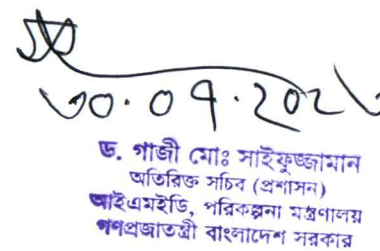 ৩০.০৭.২০২৩
ড. গাজী মোঃ সাইফুজ্জামান
অতিরিক্ত সচিব (প্রশাসন)
আইএমইডি, পরিকল্পনা মন্ত্রণালয়
গণপ্রজাতন্ত্রী বাংলাদেশ সরকার